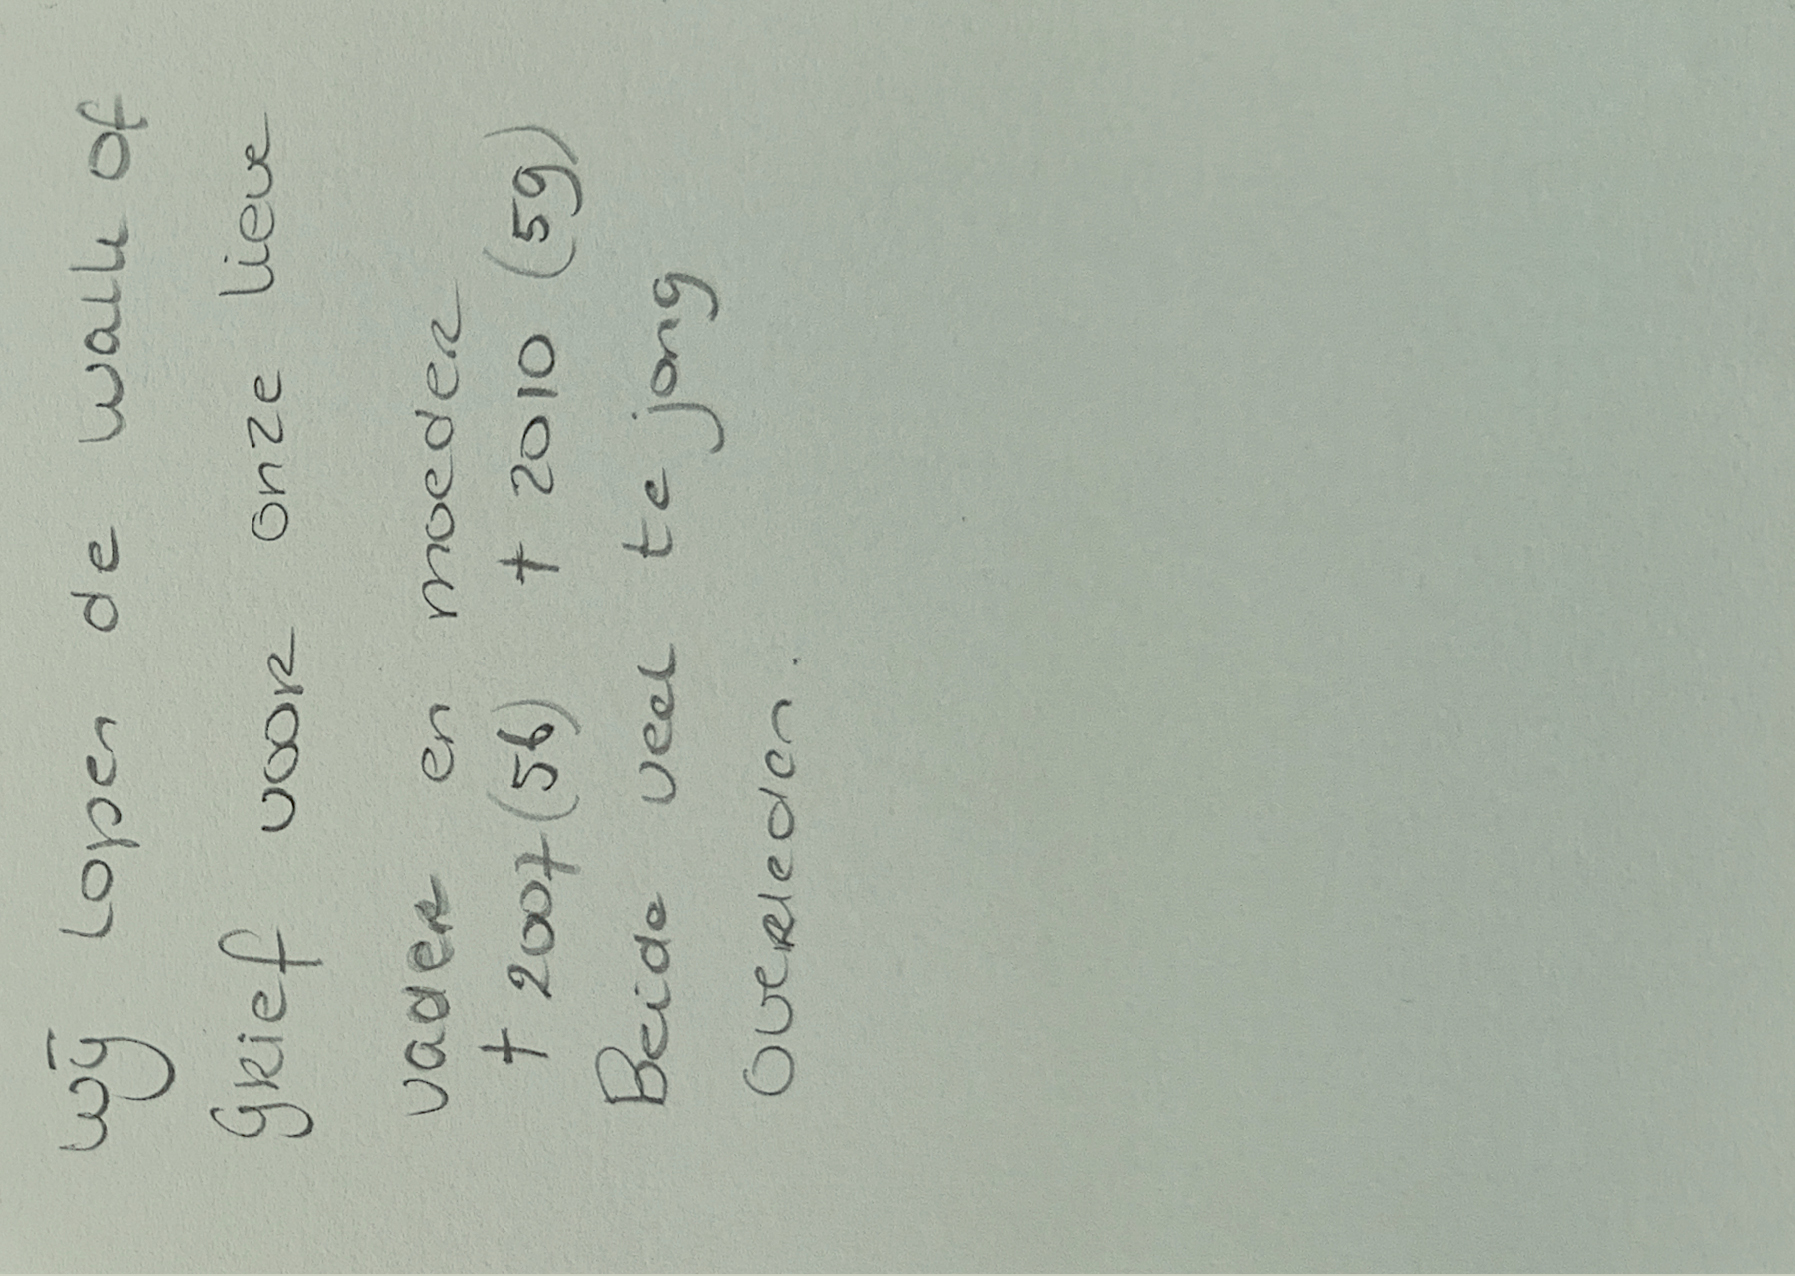 wij lopen de walk of
Grief voor onze lieve
vader en moeder
† 2007 (56) † 2010 (59)
Beide veel te jong
overleden.